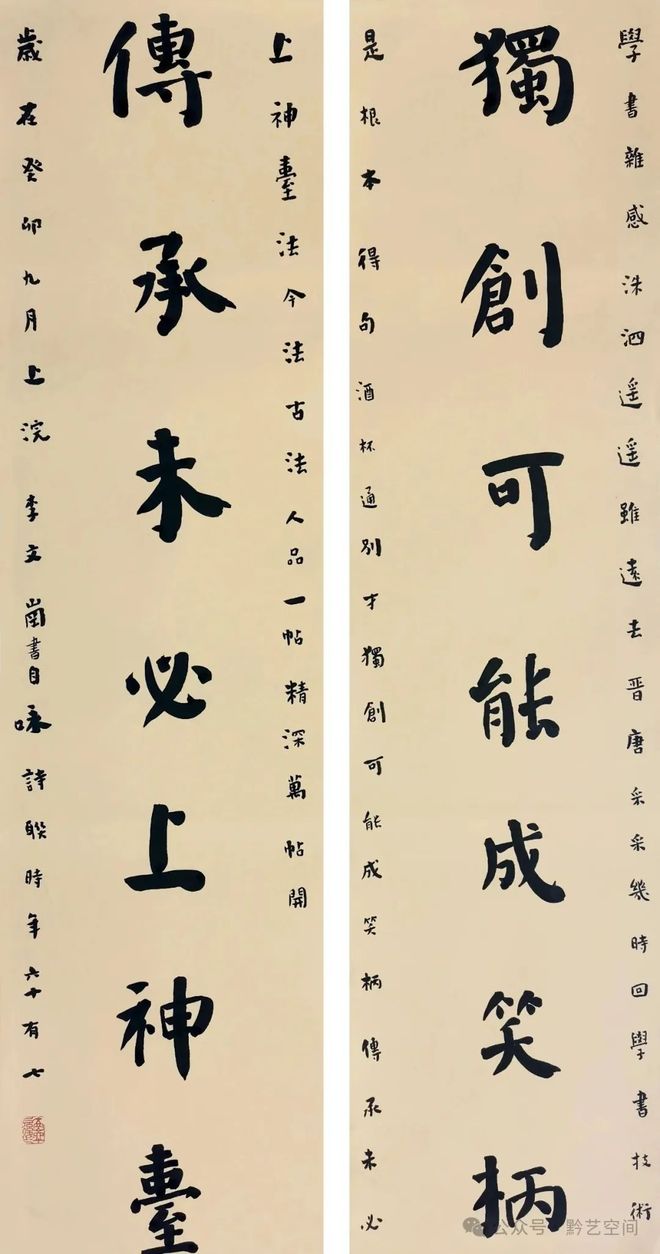 學書雜感洙泗遥遥雖遠去晋唐采采幾時回學書技術
獨創可能成笑柄
是根本得句酒杯通别才獨創可能成笑柄傳承未必
上神臺法今法古法人品一帖精深萬帖開
傳承未必上神臺
歲在癸卯九月上浣 李文崗書自咏詩聯時年六十有七
公众号·黔艺空间